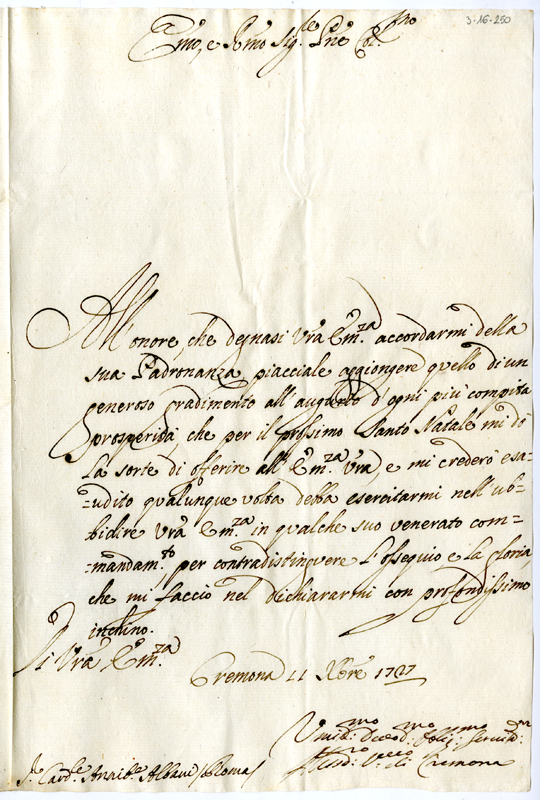 3-16-250
Emo, e Rmo Sig.le Pne Col.mo
All'onore, che degnasi Vrã Em.za accordarmi della
sua Padronanza, piacciale aggiongere quello di un
generoso gradimento all'augurio d'ogni più compita
prosperità, che per il prossimo Santo Natale mi dò
la sorte di offerire all'Em.za Vrã, e mi crederò esa=
=udito qualunque volta debba esercitarmi nell'ub=
=bidire Vrã Em.za in qualche suo venerato com=
=mandam.to per contradistinguere l'ossequio, e la gloria,
che mi faccio nel dichiararmi con profondissimo
inchino.
Di Vrã Em.za
Cremona 11 Xbre 1727
Vmil.mo Obblig.mo Servid.
Vesc. di Cremona
S. Card.le Annib.le Albani (Roma)